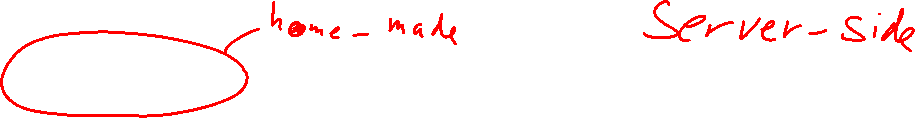 home-made
Server-side